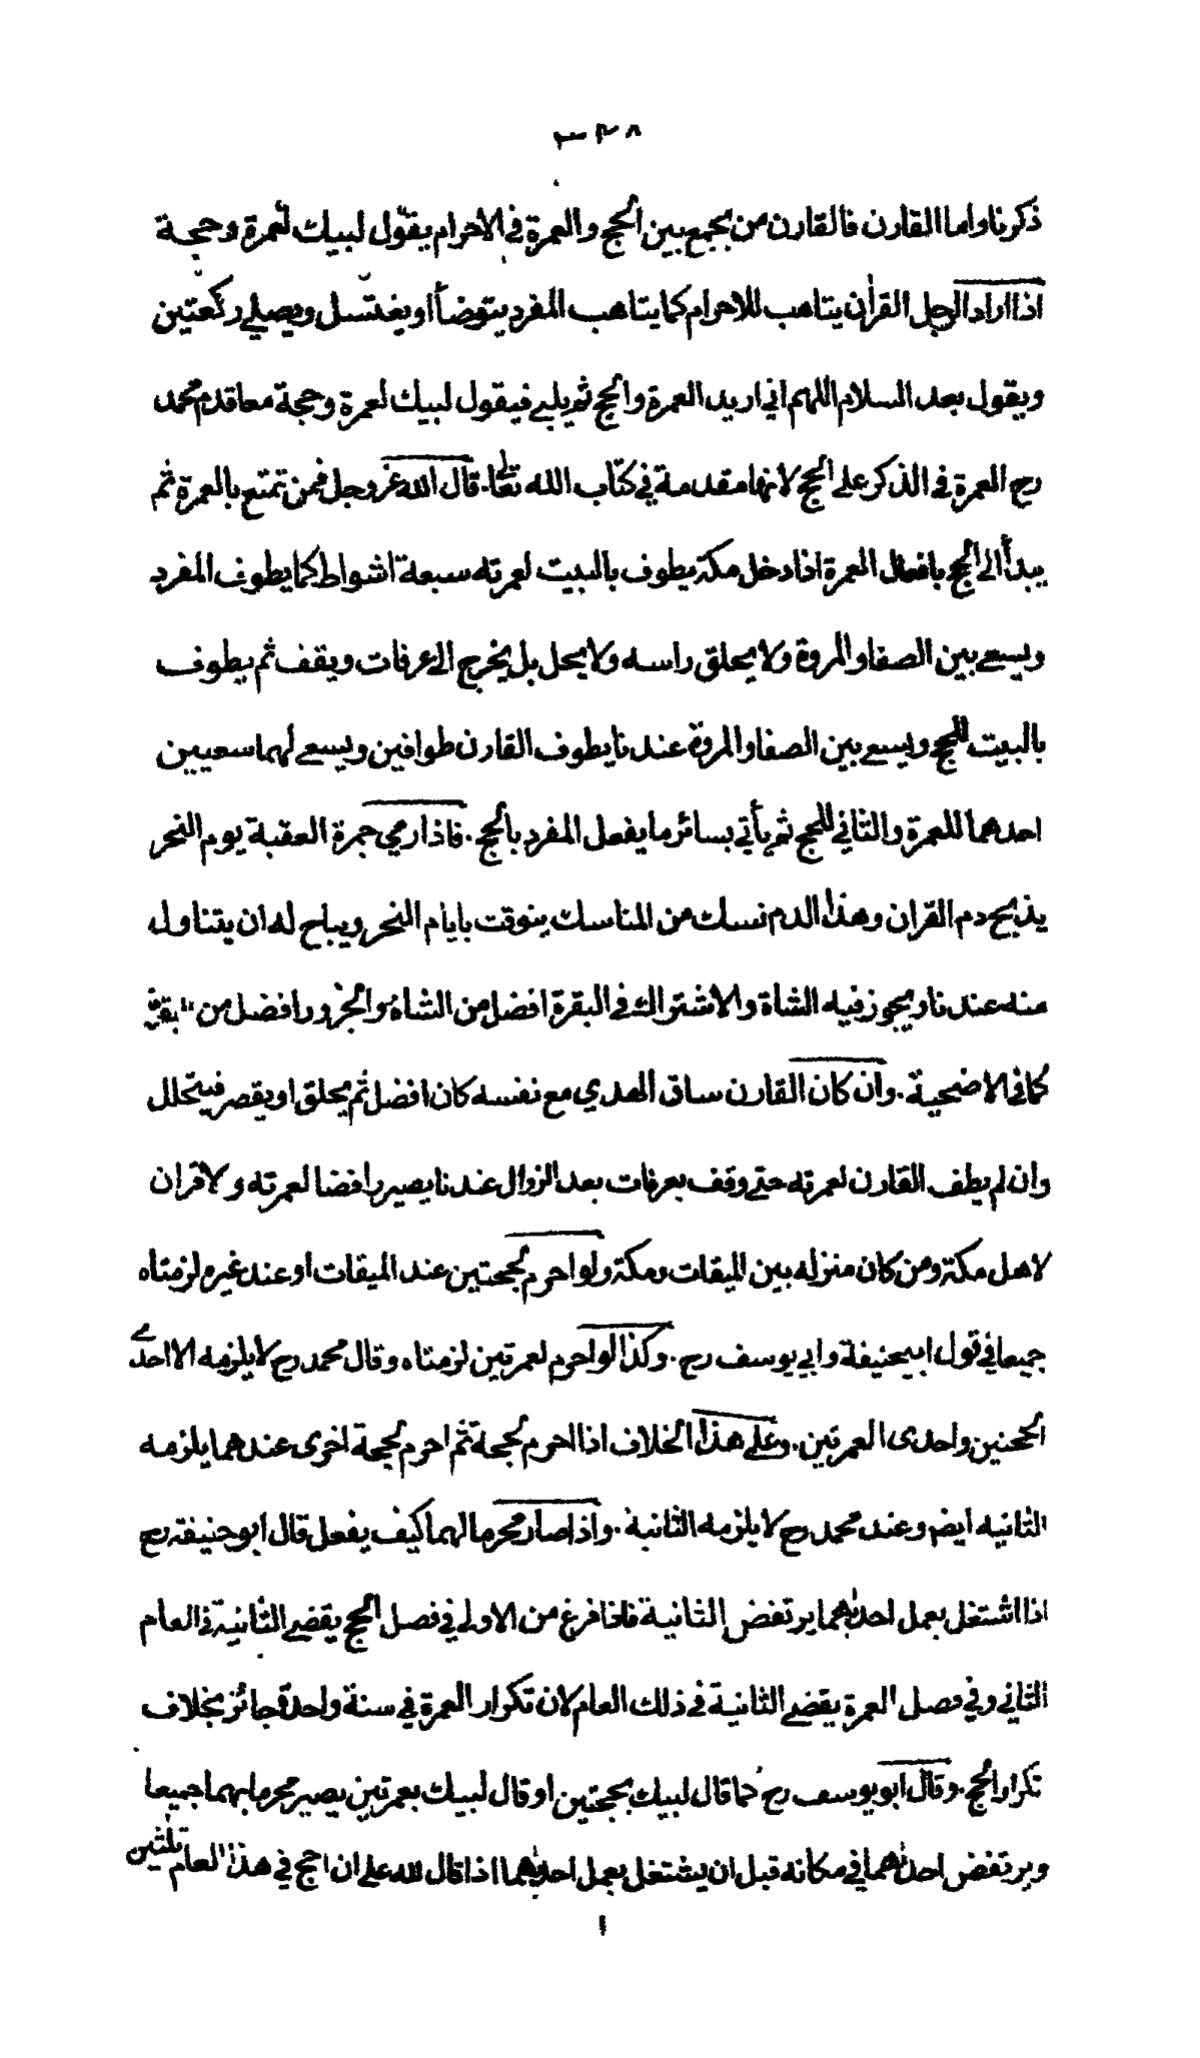 ٣٣٨
ذكرنا واما القارن فالقارن من يجمع بين الحج والعمرة في الاحرام يقول لبيك لعمرة وحجة
اذا اراد الرجل القران يتاهب للاحرام كما يتاهب المفرد يتوضأ او يغتسل ويصلي ركعتين
ويقول بعد السلام اللهم اني اريد العمرة والحج ثم يلبي فيقول لبيك لعمرة وحجة معا قدم محمد
رح العمرة في الذكر على الحج لانها مقدمة في كتاب الله تعالى. قال الله عز وجل فمن تمتع بالعمرة ثم
يبدأ الى الحج بافعال العمرة اذا دخل مكة يطوف بالبيت لعمرته سبعة اشواط كما يطوف المفرد
ويسعى بين الصفا والمروة ولا يحلق راسه ولا يحل بل يخرج الى عرفات ويقف ثم يطوف
بالبيت للحج ويسعى بين الصفا والمروة عندنا يطوف القارن طوافين ويسعى لهما سعيين
احدهما للعمرة والثاني للحج ثم يأتي بسائر ما يفعل المفرد بالحج. فاذا رمي جمرة العقبة يوم النحر
يذبح دم القران وهذا الدم نسك من المناسك يتوقت بايام النحر ويباح له ان يتناول
منه عندنا ويجوز فيه الشاة والاشتراك في البقرة افضل من الشاة والجزور افضل من البقرة
كما في الاضحية. وان كان القارن ساق الهدي مع نفسه كان افضل ثم يحلق او يقصر فيتحلل
وان لم يطف القارن لعمرته حتى وقف بعرفات بعد الزوال عندنا يصير رافضا لعمرته ولا قران
لاهل مكة ومن كان منزله بين الميقات ومكة ولو احرم لحجتين عند الميقات او عند غيره لزمتاه
جميعا في قول ابيحنيفة وابي يوسف رح. وكذا لو احرم لعمرتين لزمتاه وقال محمد رح لا يلزمه الا احدى
الحجتين واحدى العمرتين. وعلى هذا الخلاف اذا احرم لحجة ثم احرم لحجة اخرى عندهما يلزمه
الثانيه ايضم وعند محمد رح لا يلزمه الثانية. واذا صار محرما لهما كيف يفعل قال ابو حنيفة رح
اذا اشتغل بعمل احدٰهما يرتفض الثانية فاذا فرغ من الاولى في فصل الحج يقضي الثانية في العام
الثاني وفي فصل العمرة يقضي الثانية في ذلك العام لان تكرار العمرة في سنة واحدة جائز بخلاف
تكرار الحج. وقال ابو يوسف رح كما قال لبيك بحجتين او قال لبيك بعمرتين يصير محرما بهما جميعا
ويرتفض احدٰهما في مكانه قبل ان يشتغل بعمل احدٰهما اذا قال لله على ان احج في هذا العام ثلثين